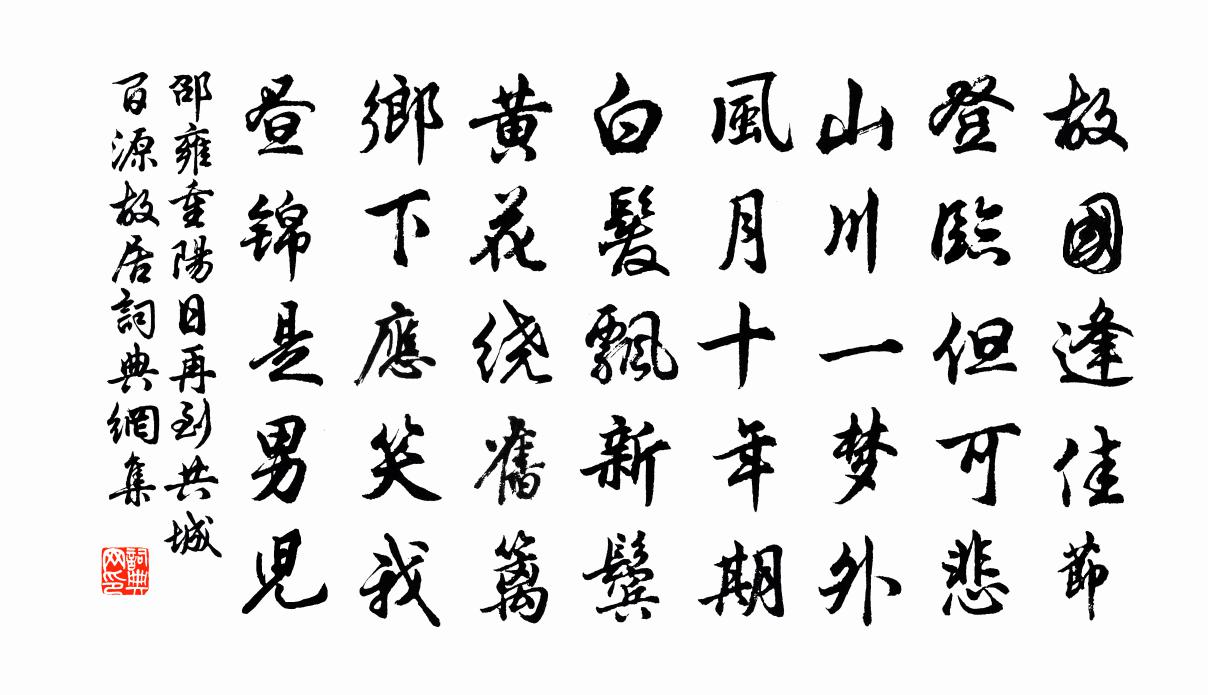 故國逢佳節
登臨但可悲
山川一梦外
風月十年期
白髮飄新鬢
黄花绕舊籬
鄉下應笑我
昼锦是男児
邵雍重陽日再到共城
百源故居詞典網集
詞典网印